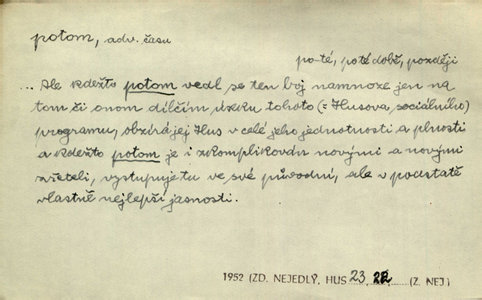 potom, adv. času
po té, po té době, později
... Ale kdežto potom vedl se ten boj namnoze jen na
tom či onom dílčím úseku tohoto (= Husova, sociálního)
programu, obzírá jej Hus v celé jeho jednotnosti a plnosti
a kdežto potom je i zkomplikován novými a novými
zřeteli, vystupuje tu ve své původní, ale v podstatě
vlastně nejlepší jasnosti.
1952 (ZD. NEJEDLÝ, HUS 23, 22 (Z. NEJ)